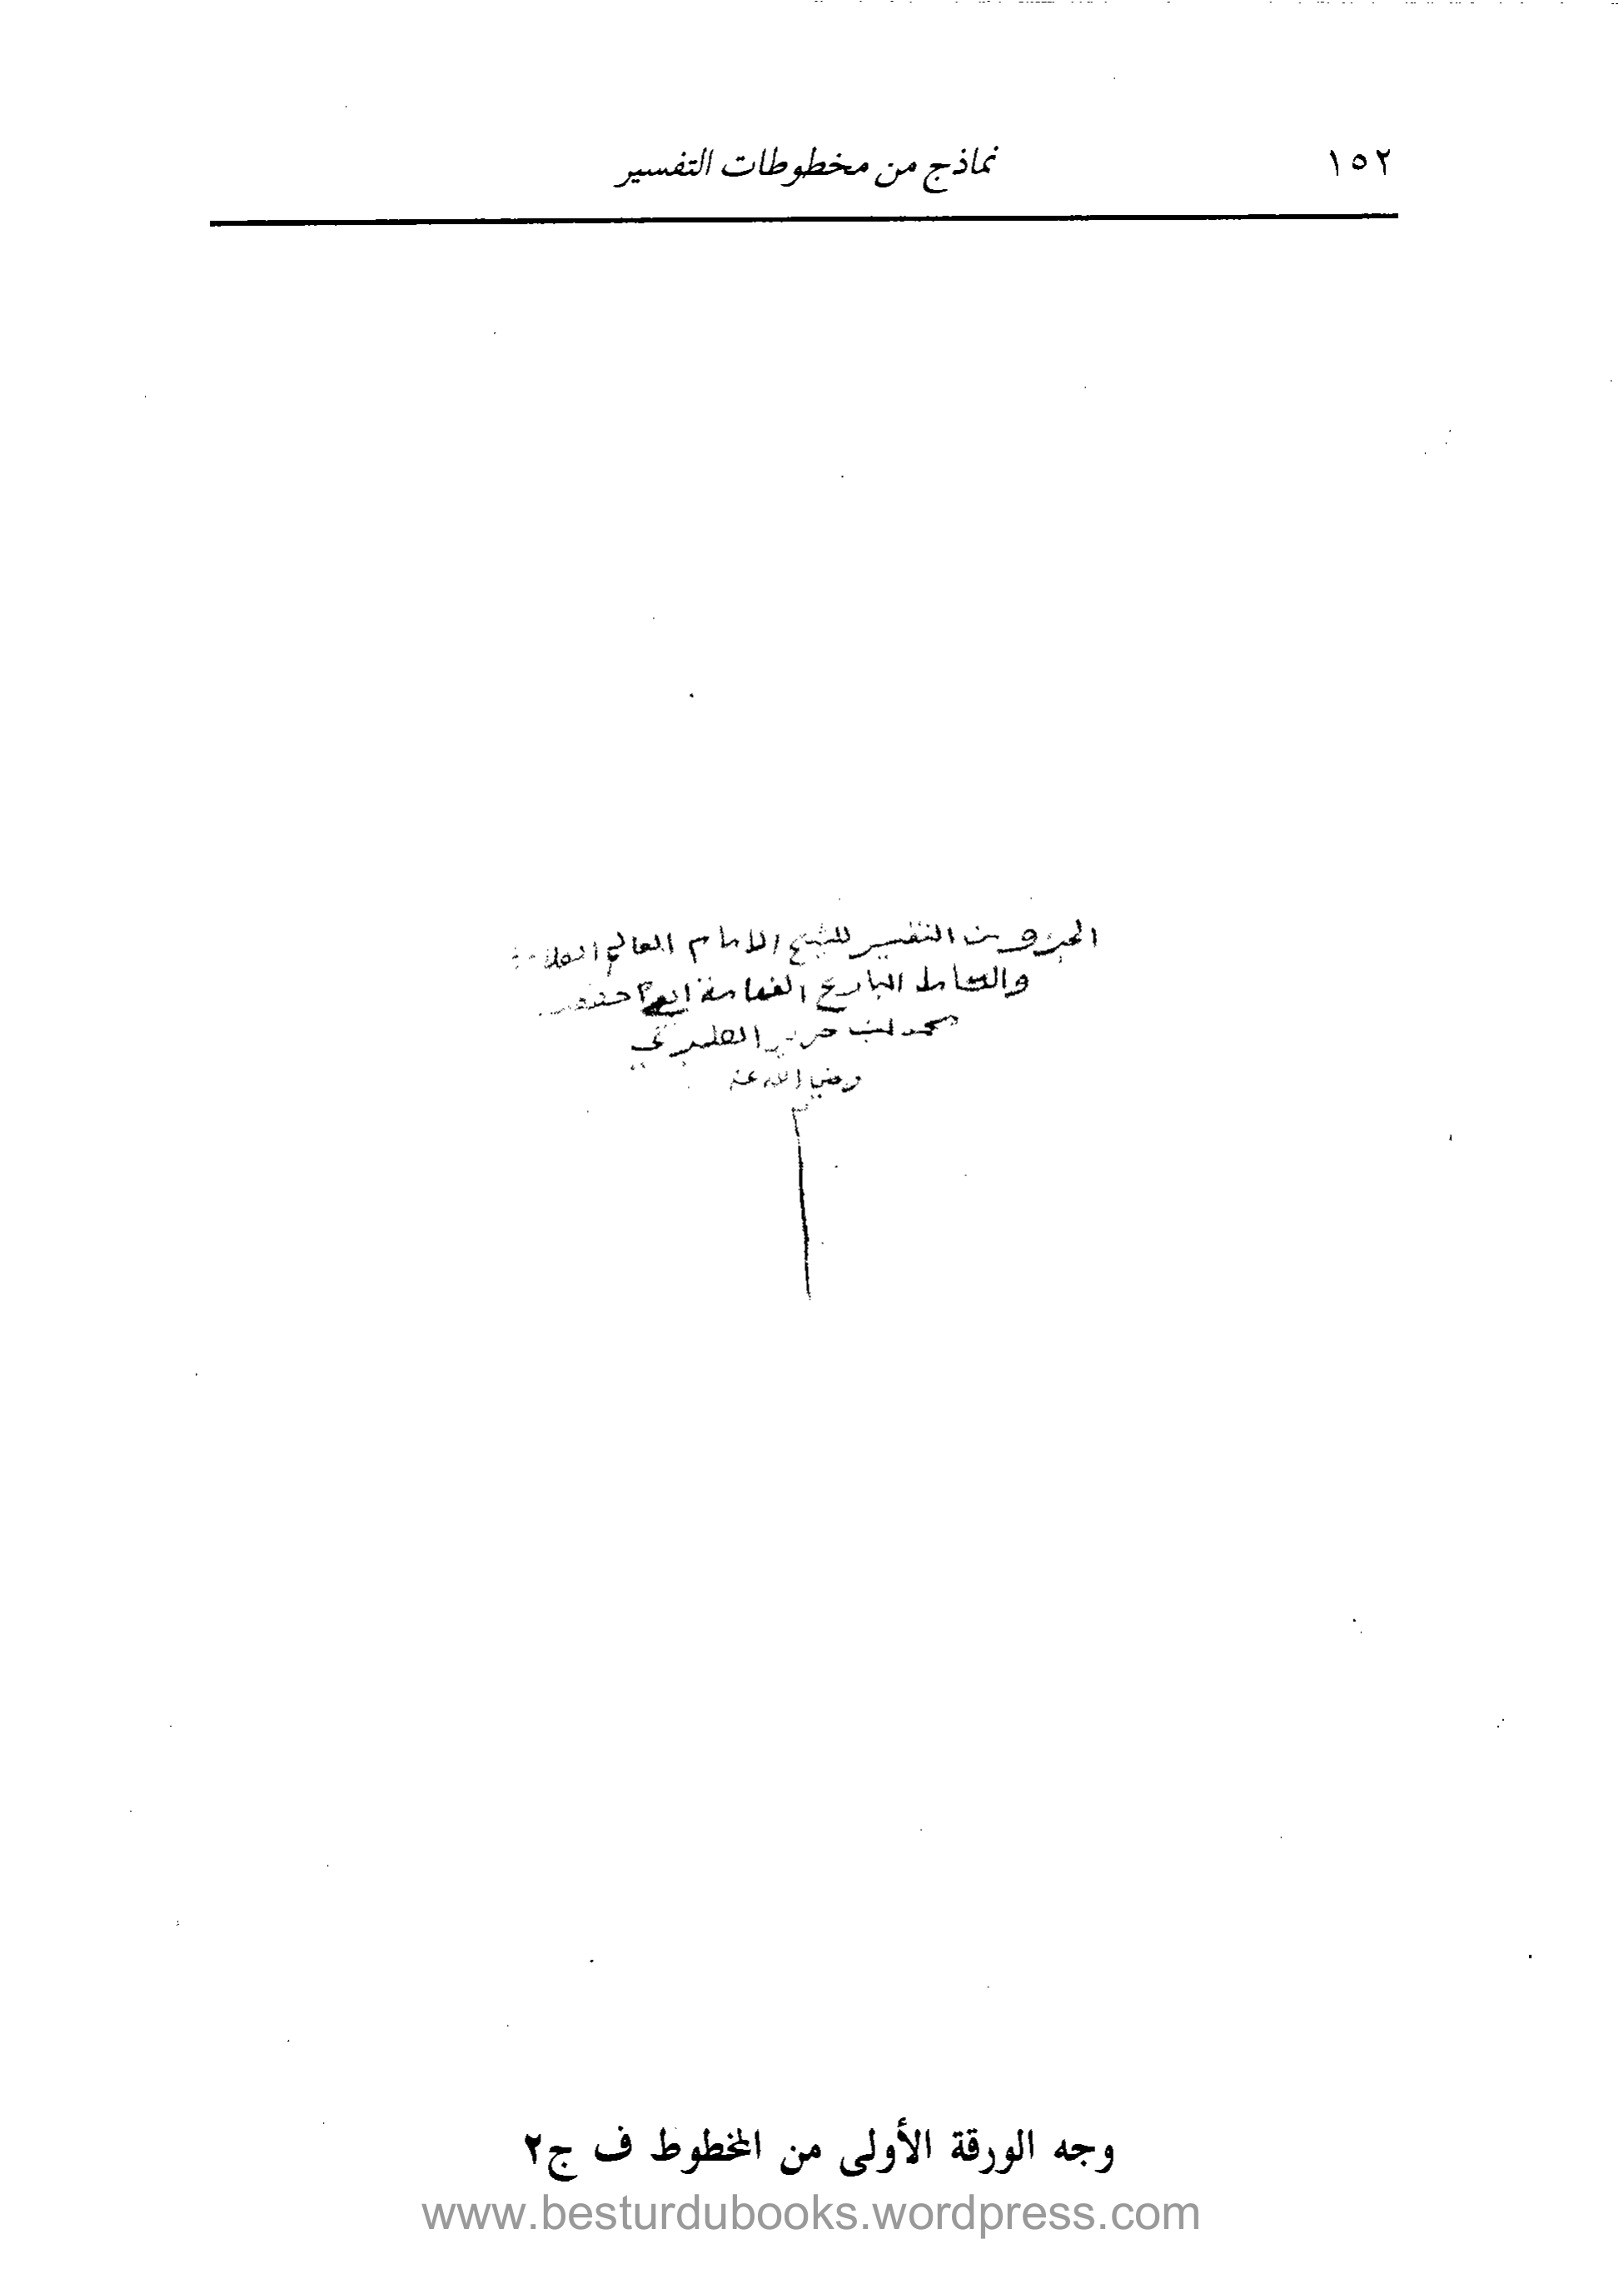 ١٥٢
نماذج من مخطوطات التفسير
الجزو من التفسير للشيخ الامام العالم العلامة
والكامل البارع الفهامة ابي جعفر
محمد ابن جرير الطبري
رضي الله عنه
وجه الورقة الأولى من المخطوط ف ج٢
www.besturdubooks.wordpress.com